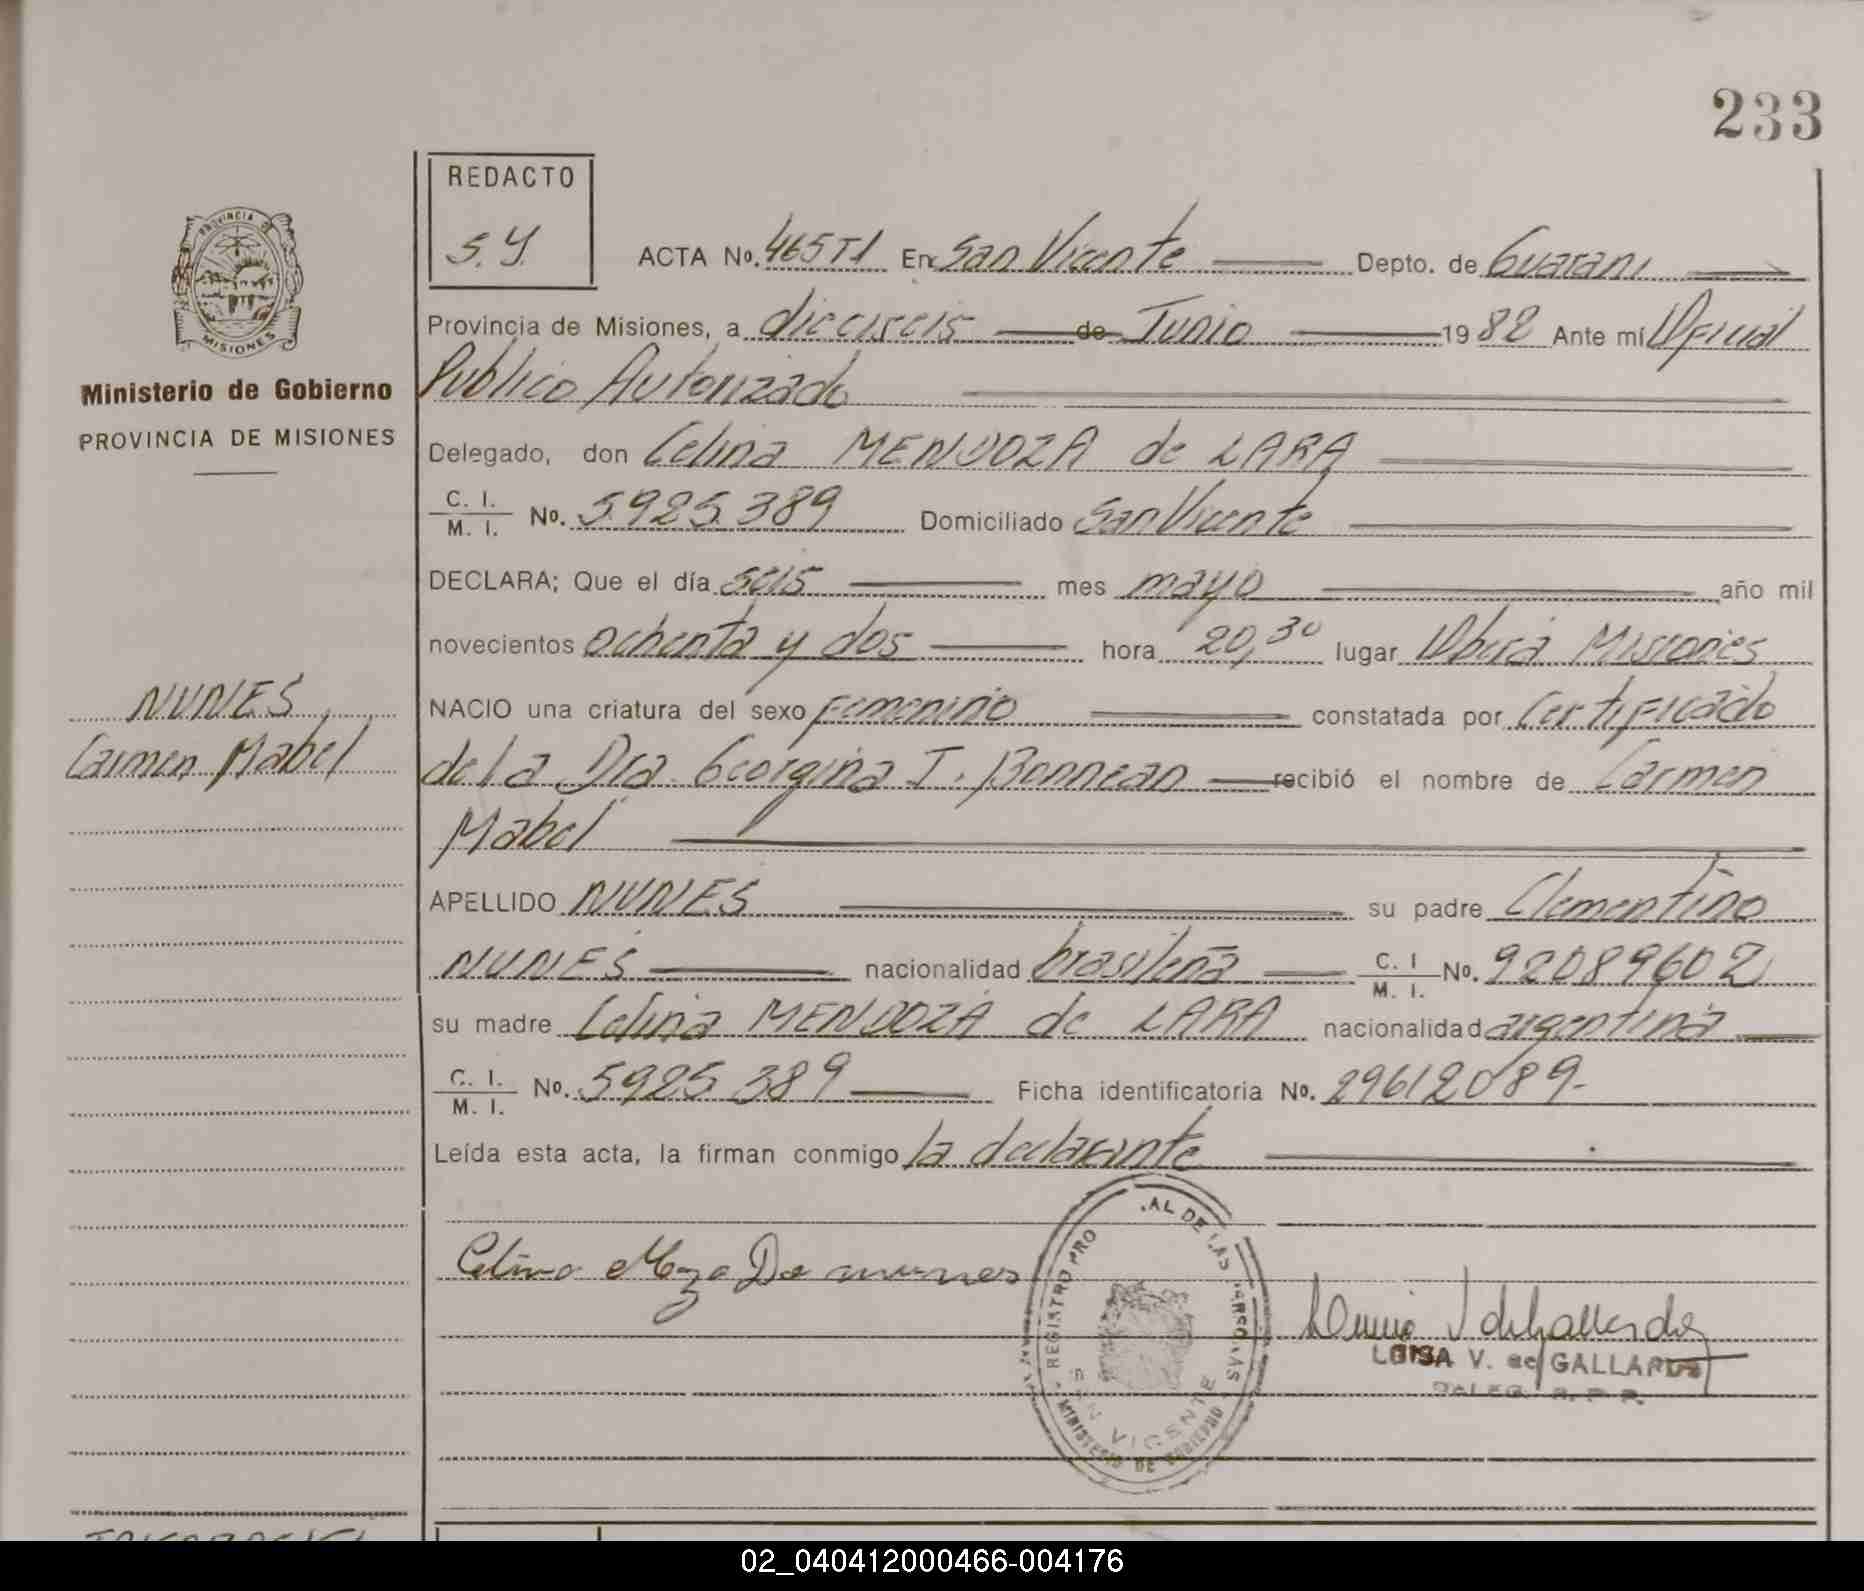 233
REDACTO
S.Y.
ACTA No. 465 T1 En San Vicente Depto. de Guarani
Provincia de Misiones, a dieciseis de Junio 1982 Ante mi Oficial
Publico Autorizado
Delegado, don Celina MENDOZA de LARA
C. I. / M. I. No. 5.925.389 Domiciliado San Vicente
DECLARA; Que el día seis mes mayo año mil
novecientos ochenta y dos hora 20,30 lugar Oberá Misiones
NACIO una criatura del sexo femenino constatada por Certificado
de la Dra. Georgina T. Bonnean recibió el nombre de Carmen
Mabel
APELLIDO NUNES su padre Clementino
NUNES nacionalidad brasileña C. I / M. I. No. 92089602
su madre Celina MENDOZA de LARA nacionalidad argentina
C. I. / M. I. No. 5925389 Ficha identificatoria No. 29612089-
Leída esta acta, la firman conmigo la declarante
PROVINCIA DE
MISIONES
Ministerio de Gobierno
PROVINCIA DE MISIONES
NUNES
Carmen Mabel
Celina De nunes
REGISTRO PRO AL DE LAS PERSONAS
SAN VICENTE
MINISTERIO DE GOBIERNO
LUISA V. de GALLARDO
02_040412000466-004176